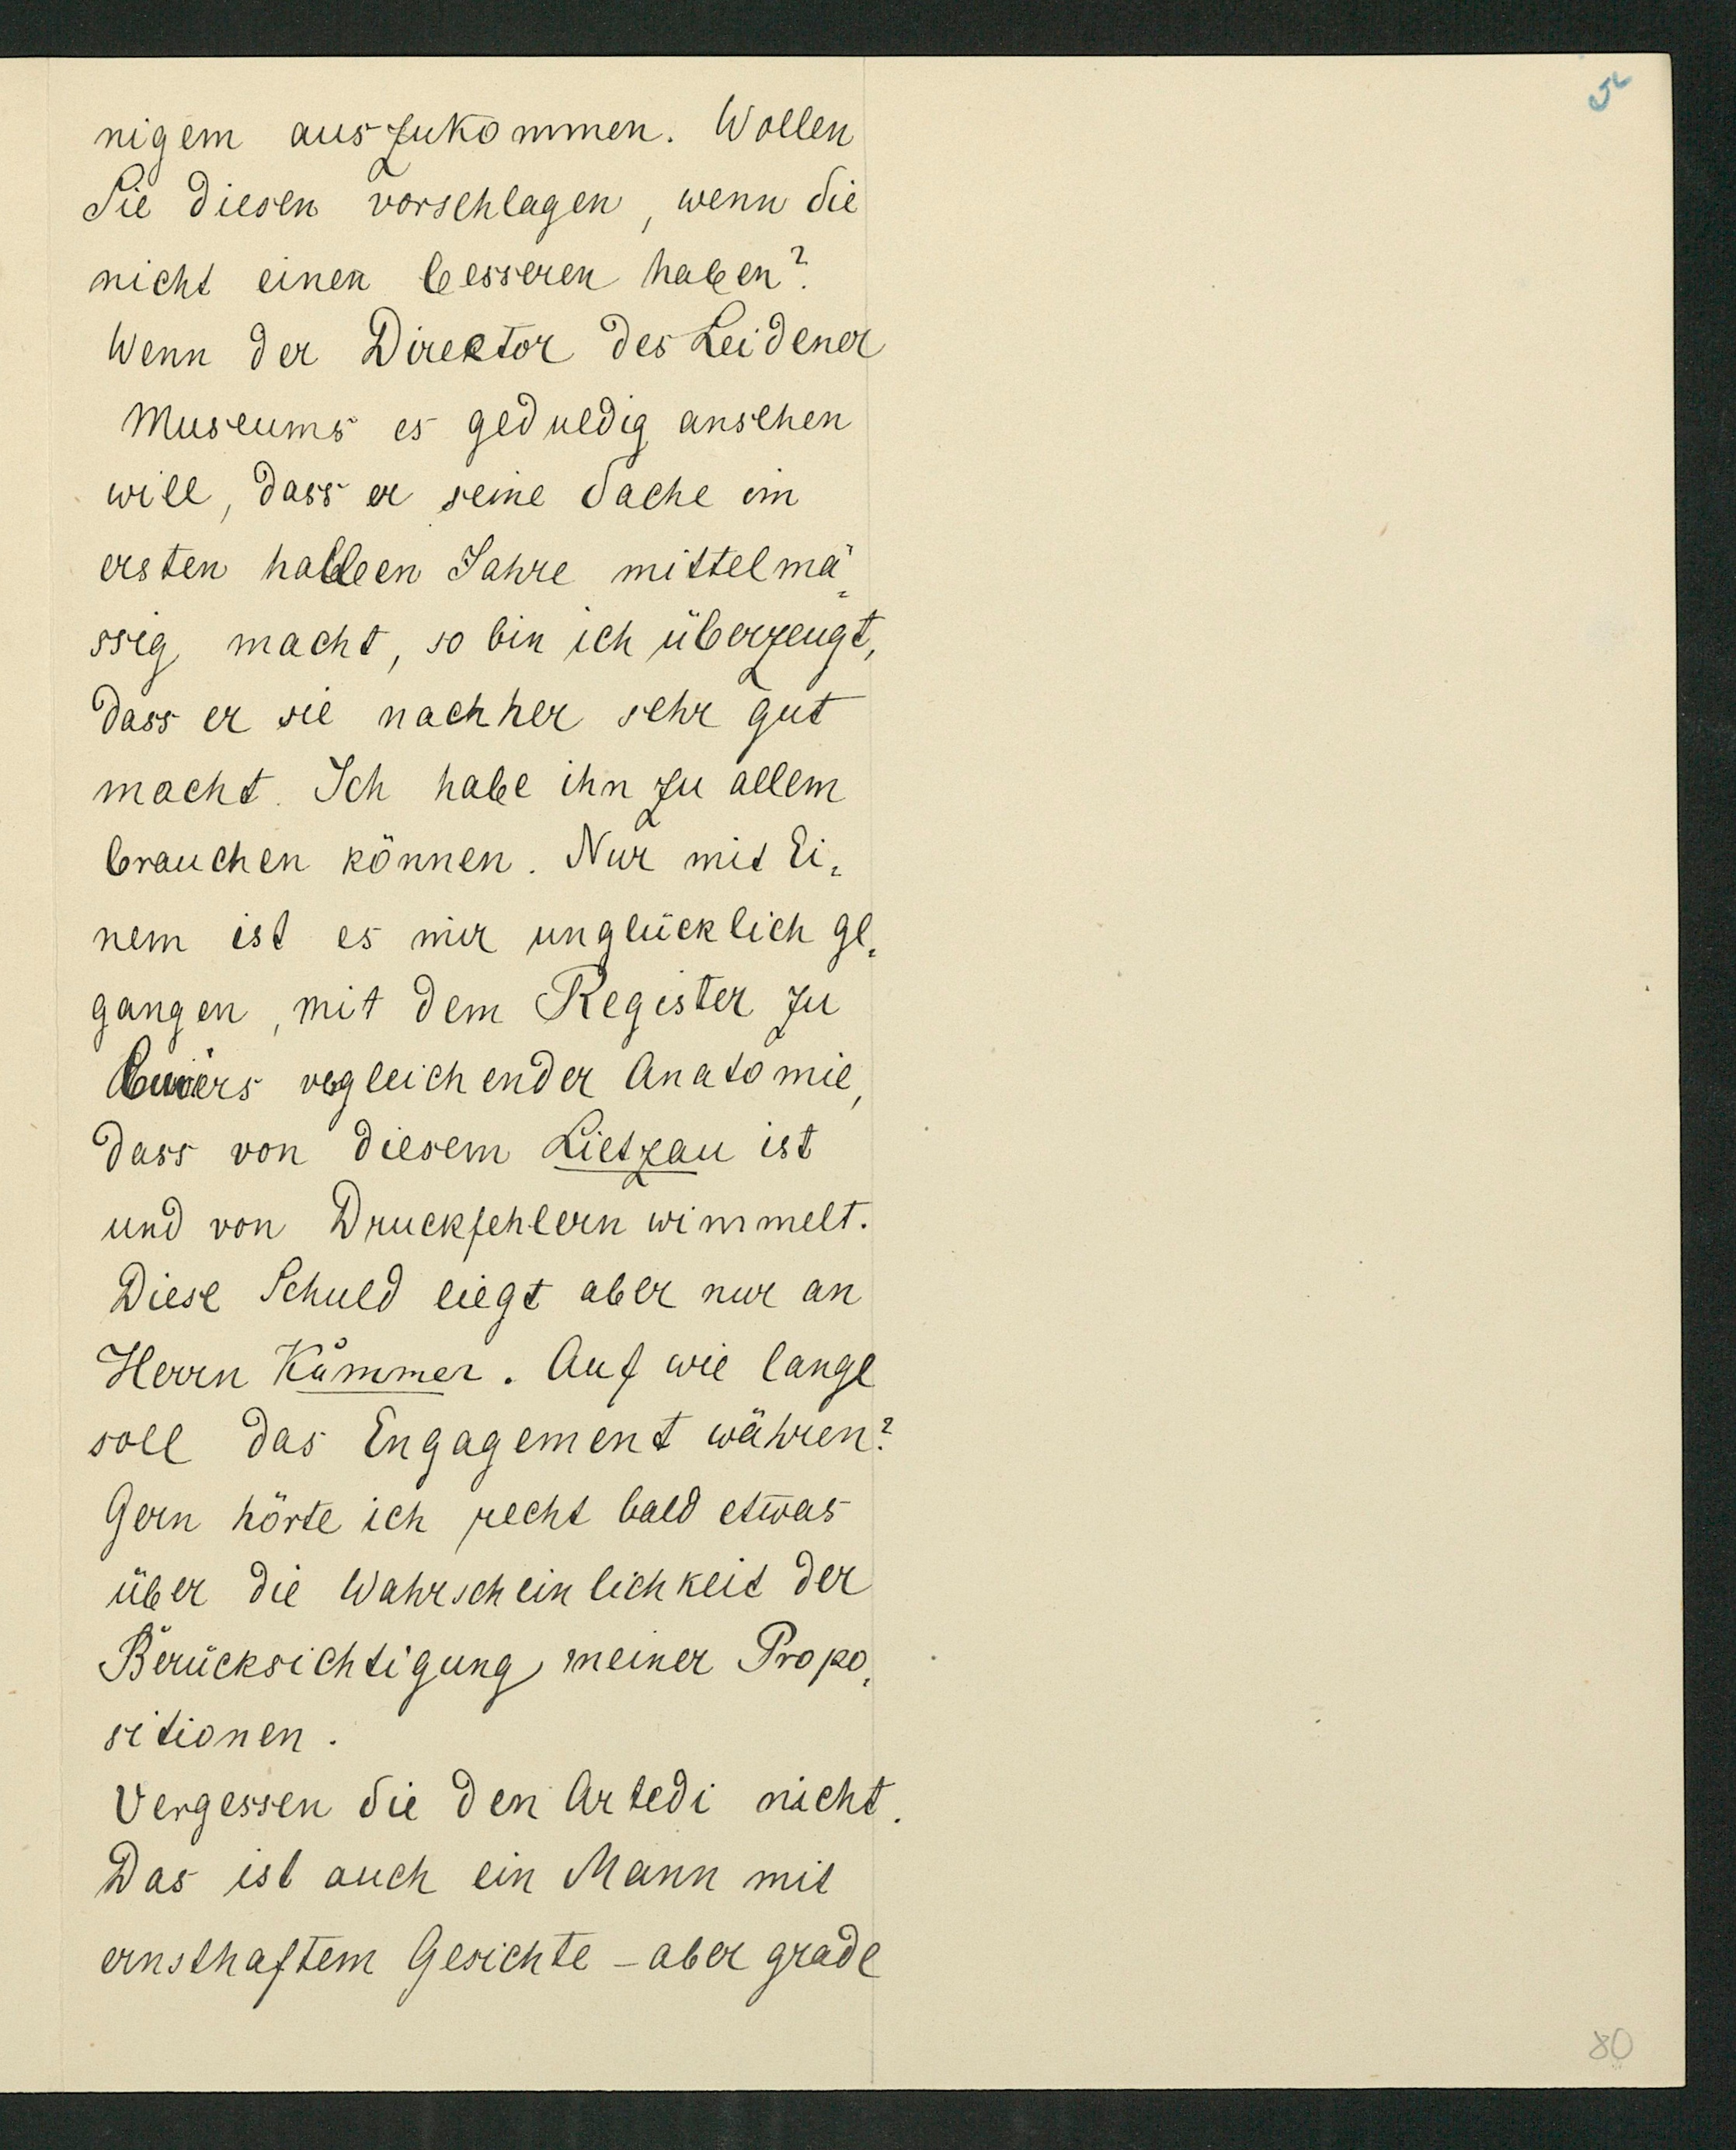 5
nigem auszukommen. Wollen
Sie diesen vorschlagen, wenn Sie
nicht einen besseren haben?
Wenn der Director des Leidener
Museums es geduldig ansehen
will, dass er seine Sache im
ersten halben Jahre mittelmä-
ssig macht, so bin ich überzeugt,
dass er sie nachher sehr gut
macht. Ich habe ihn zu allem
brauchen können. Nur mit Ei-
nem ist es mir unglücklich ge-
gangen, mit dem Register zu
vgleichender Anatomie,
dass von diesem Lietzau ist
und von Druckfehlern wimmelt.
Diese Schuld liegt aber nur an
Herrn Kümmer. Auf wie lange
soll das Engagement währen?
Gern hörte ich recht bald etwas
über die Wahrscheinlichkeit der
Berücksichtigung meiner Propo-
sitionen.
Vergessen Sie den Artedi nicht.
Das ist auch ein Mann mit
ernsthaftem Gesichte – aber grade
80